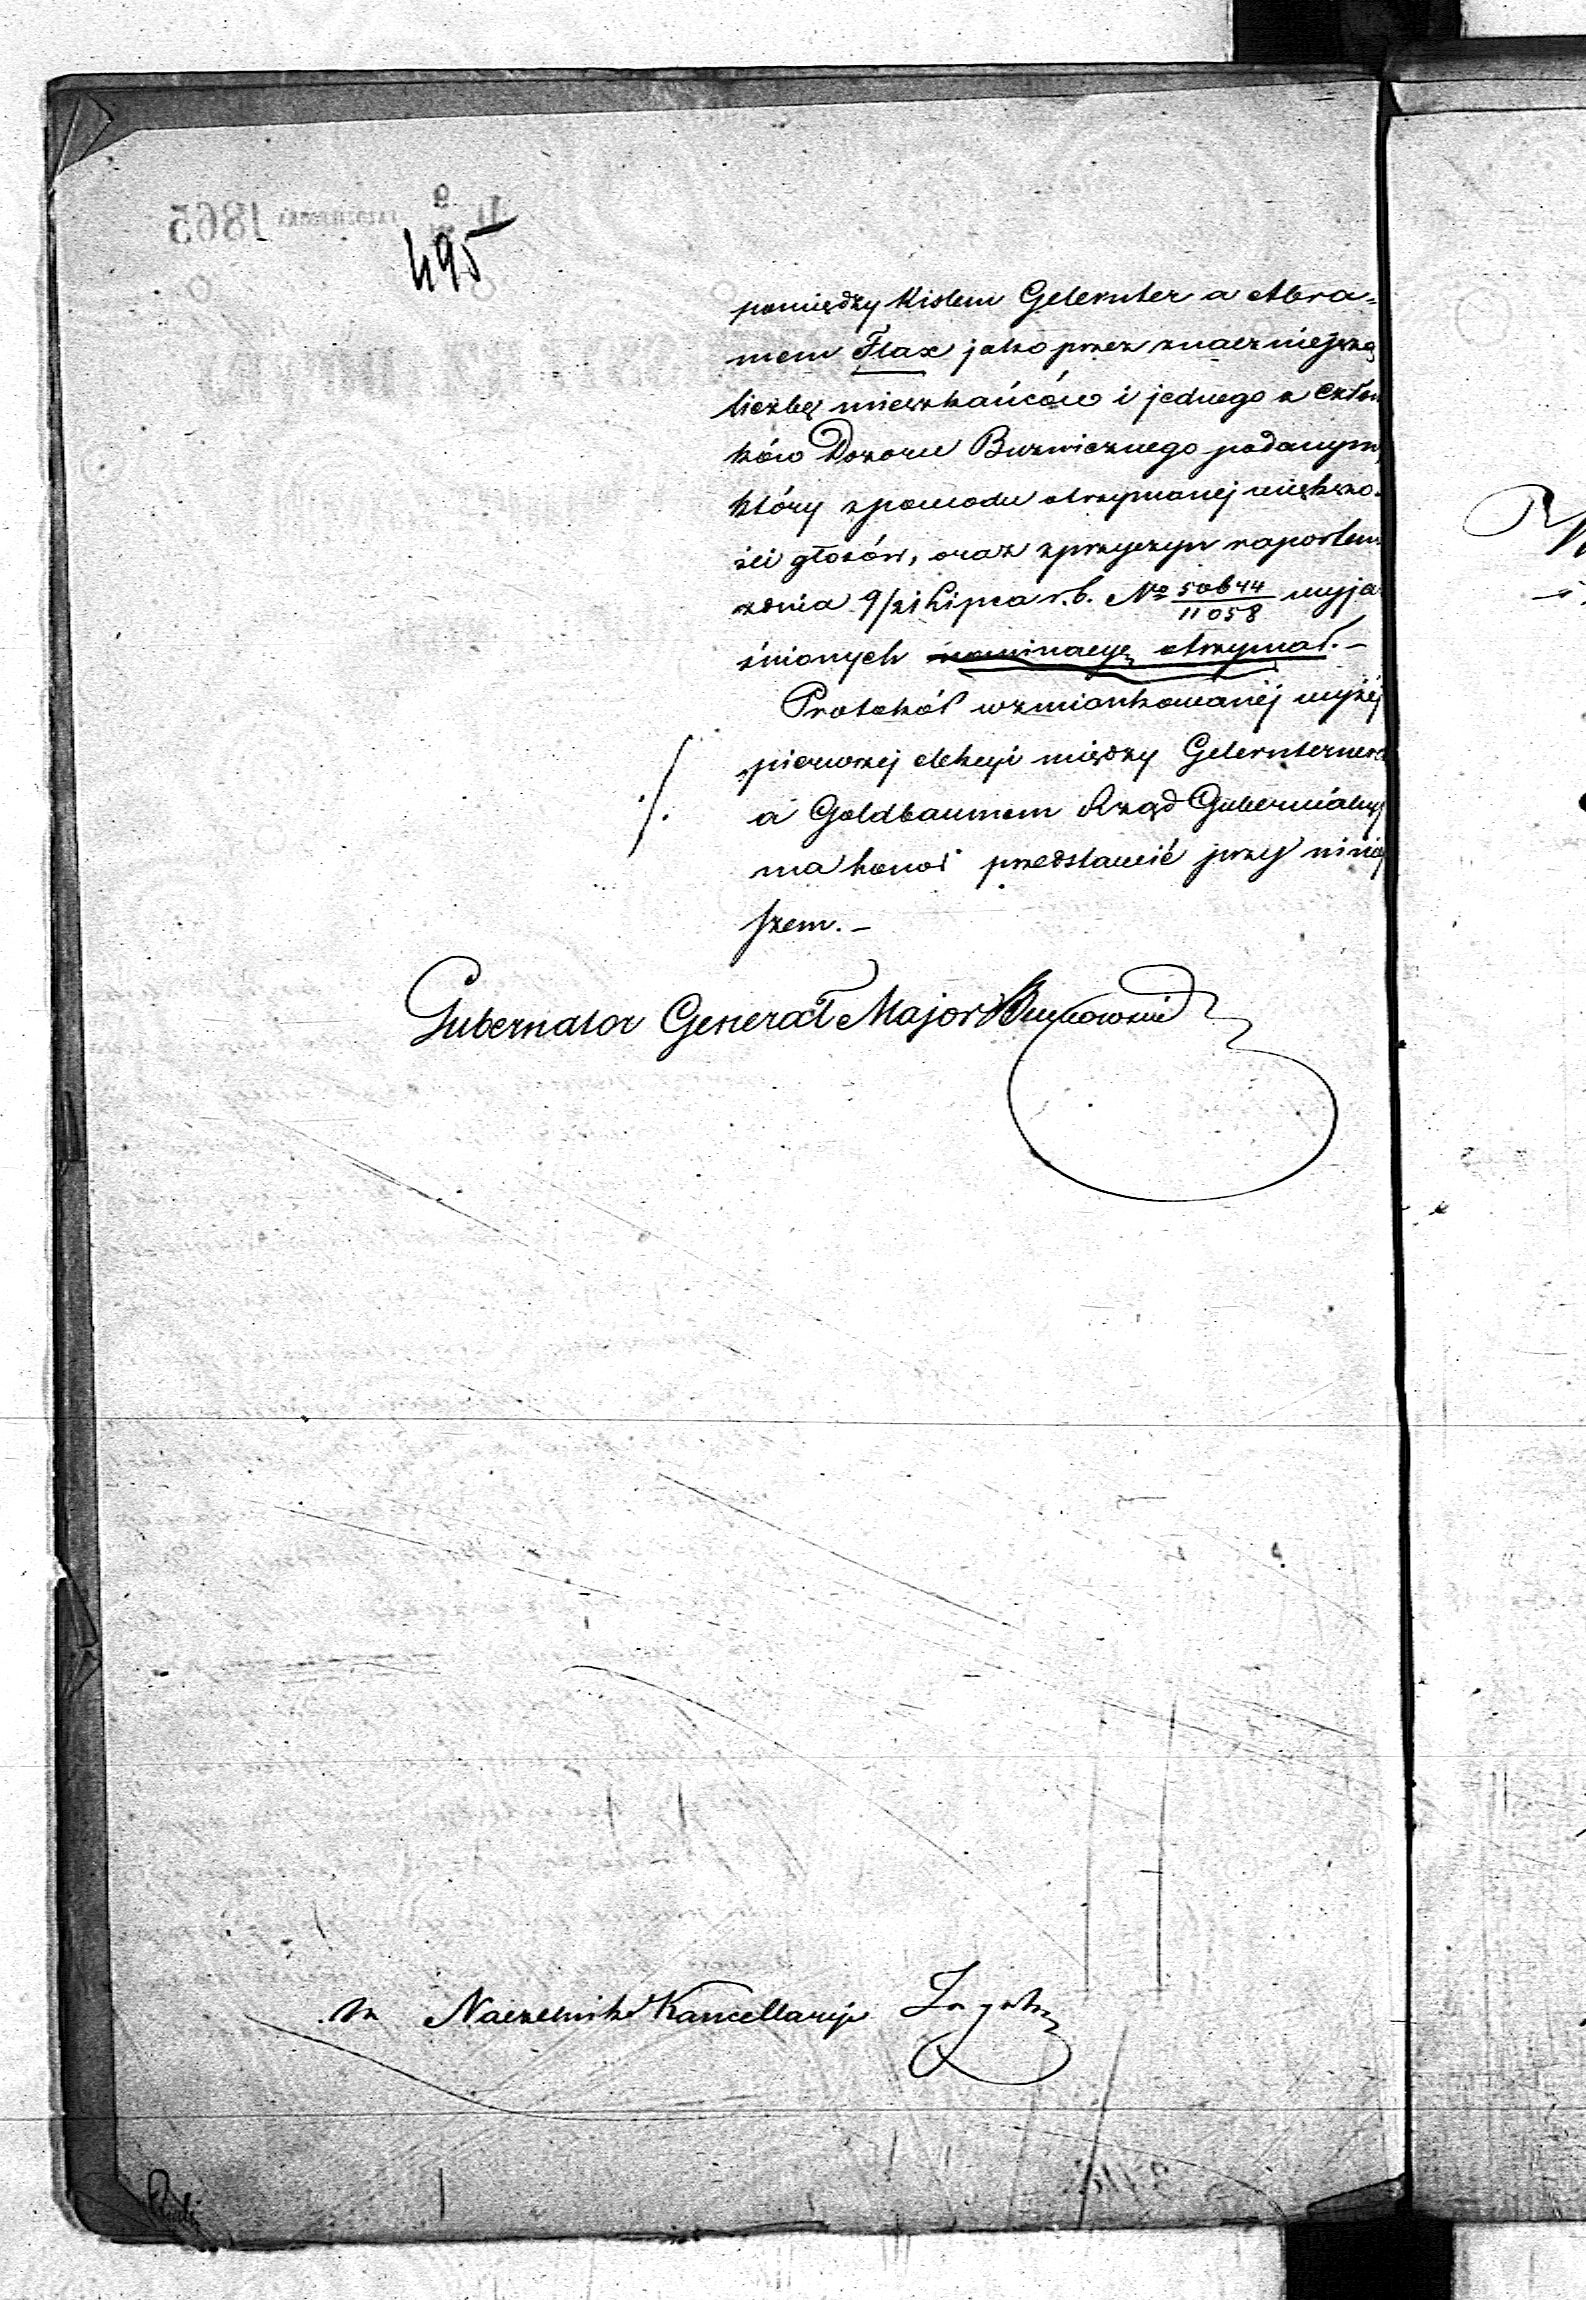 495
pomiędzy Kislem Gelernter a Abra=
mem Flax jako przez znaczniejszą
liczbę mieszkańców i jednego z Człon
ków Dozoru Buzwicznego podanym,
który z powodu otrzymanej większo-
ści głosów, oraz z przyczyn raportem
z dnia 9/21 Lipca r. b. No 50644/11058 wyja
śnionych nominacyę otrzymał. -
Protokół wzmiankowanéj wyżéj
pierwszej elekcyi między Gelernterem
a Goldbaumem Rząd Gubernialny
ma honor przedstawić przy niniej
szem. -
Gubernator Generał Major
Naczelnik Kancellaryi